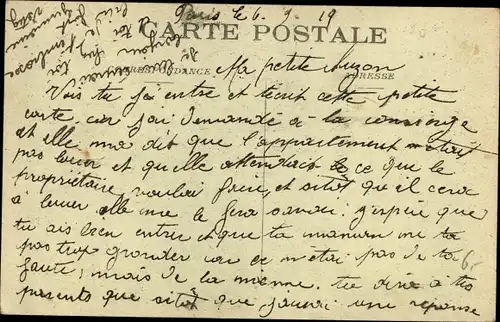 Paris le 6. 9. 19
CARTE POSTALE
CORRESPONDANCE
ADRESSE
Ma petite Suzon
Vois tu j'ai entre et técrit cette petite
carte, car j'ai demandé à la concierge
et elle ma dit que l'appartement n'était
pas louer et quelle attendait ce que le
propriétaire voulai faire, et sitot qu il cera
a louer elle me le fera savoir. j'espère que
tu ais bien entrer et que ta maman ne ta
pas trop grander car ce n'etai pas de ta
faute, mais de la mienne. tu dira à tes
parents que sitôt que j'aurai une réponse